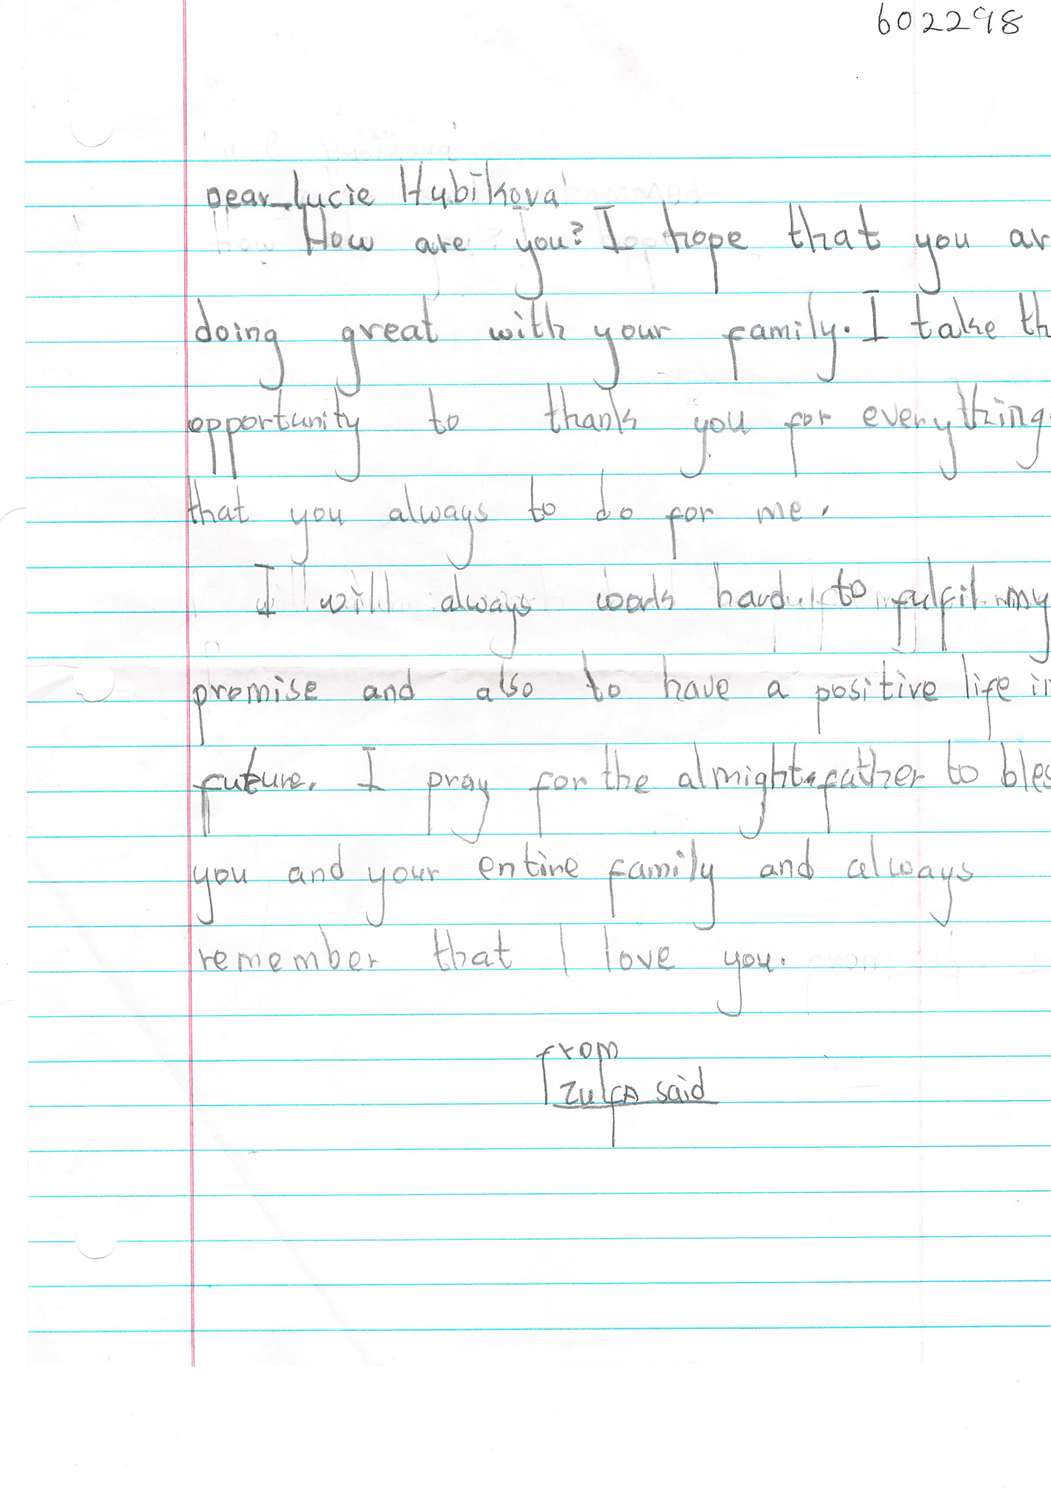 602298
Dear Lucie Hubikova
How are you? I hope that you ar
doing great with your family. I take th
opportunity to thank you for everything
that you always to do for me.
I will always work hard to fulfil my
promise and also to have a positive life in
future. I pray for the almight father to bles
you and your entire family and always
remember that I love you.
from
Zulfa said